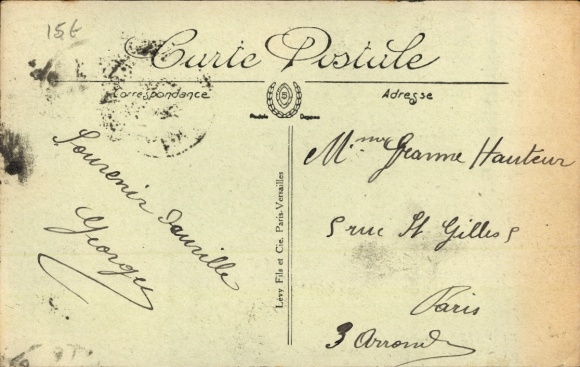 15 €
Carte Postale
Correspondance
Adresse
Mme Jeanne Hauteur
5 rue St Gilles 5
Paris
3 Arrond
Souvenir
Georges
Lévy Fils et Cie. Paris-Versailles